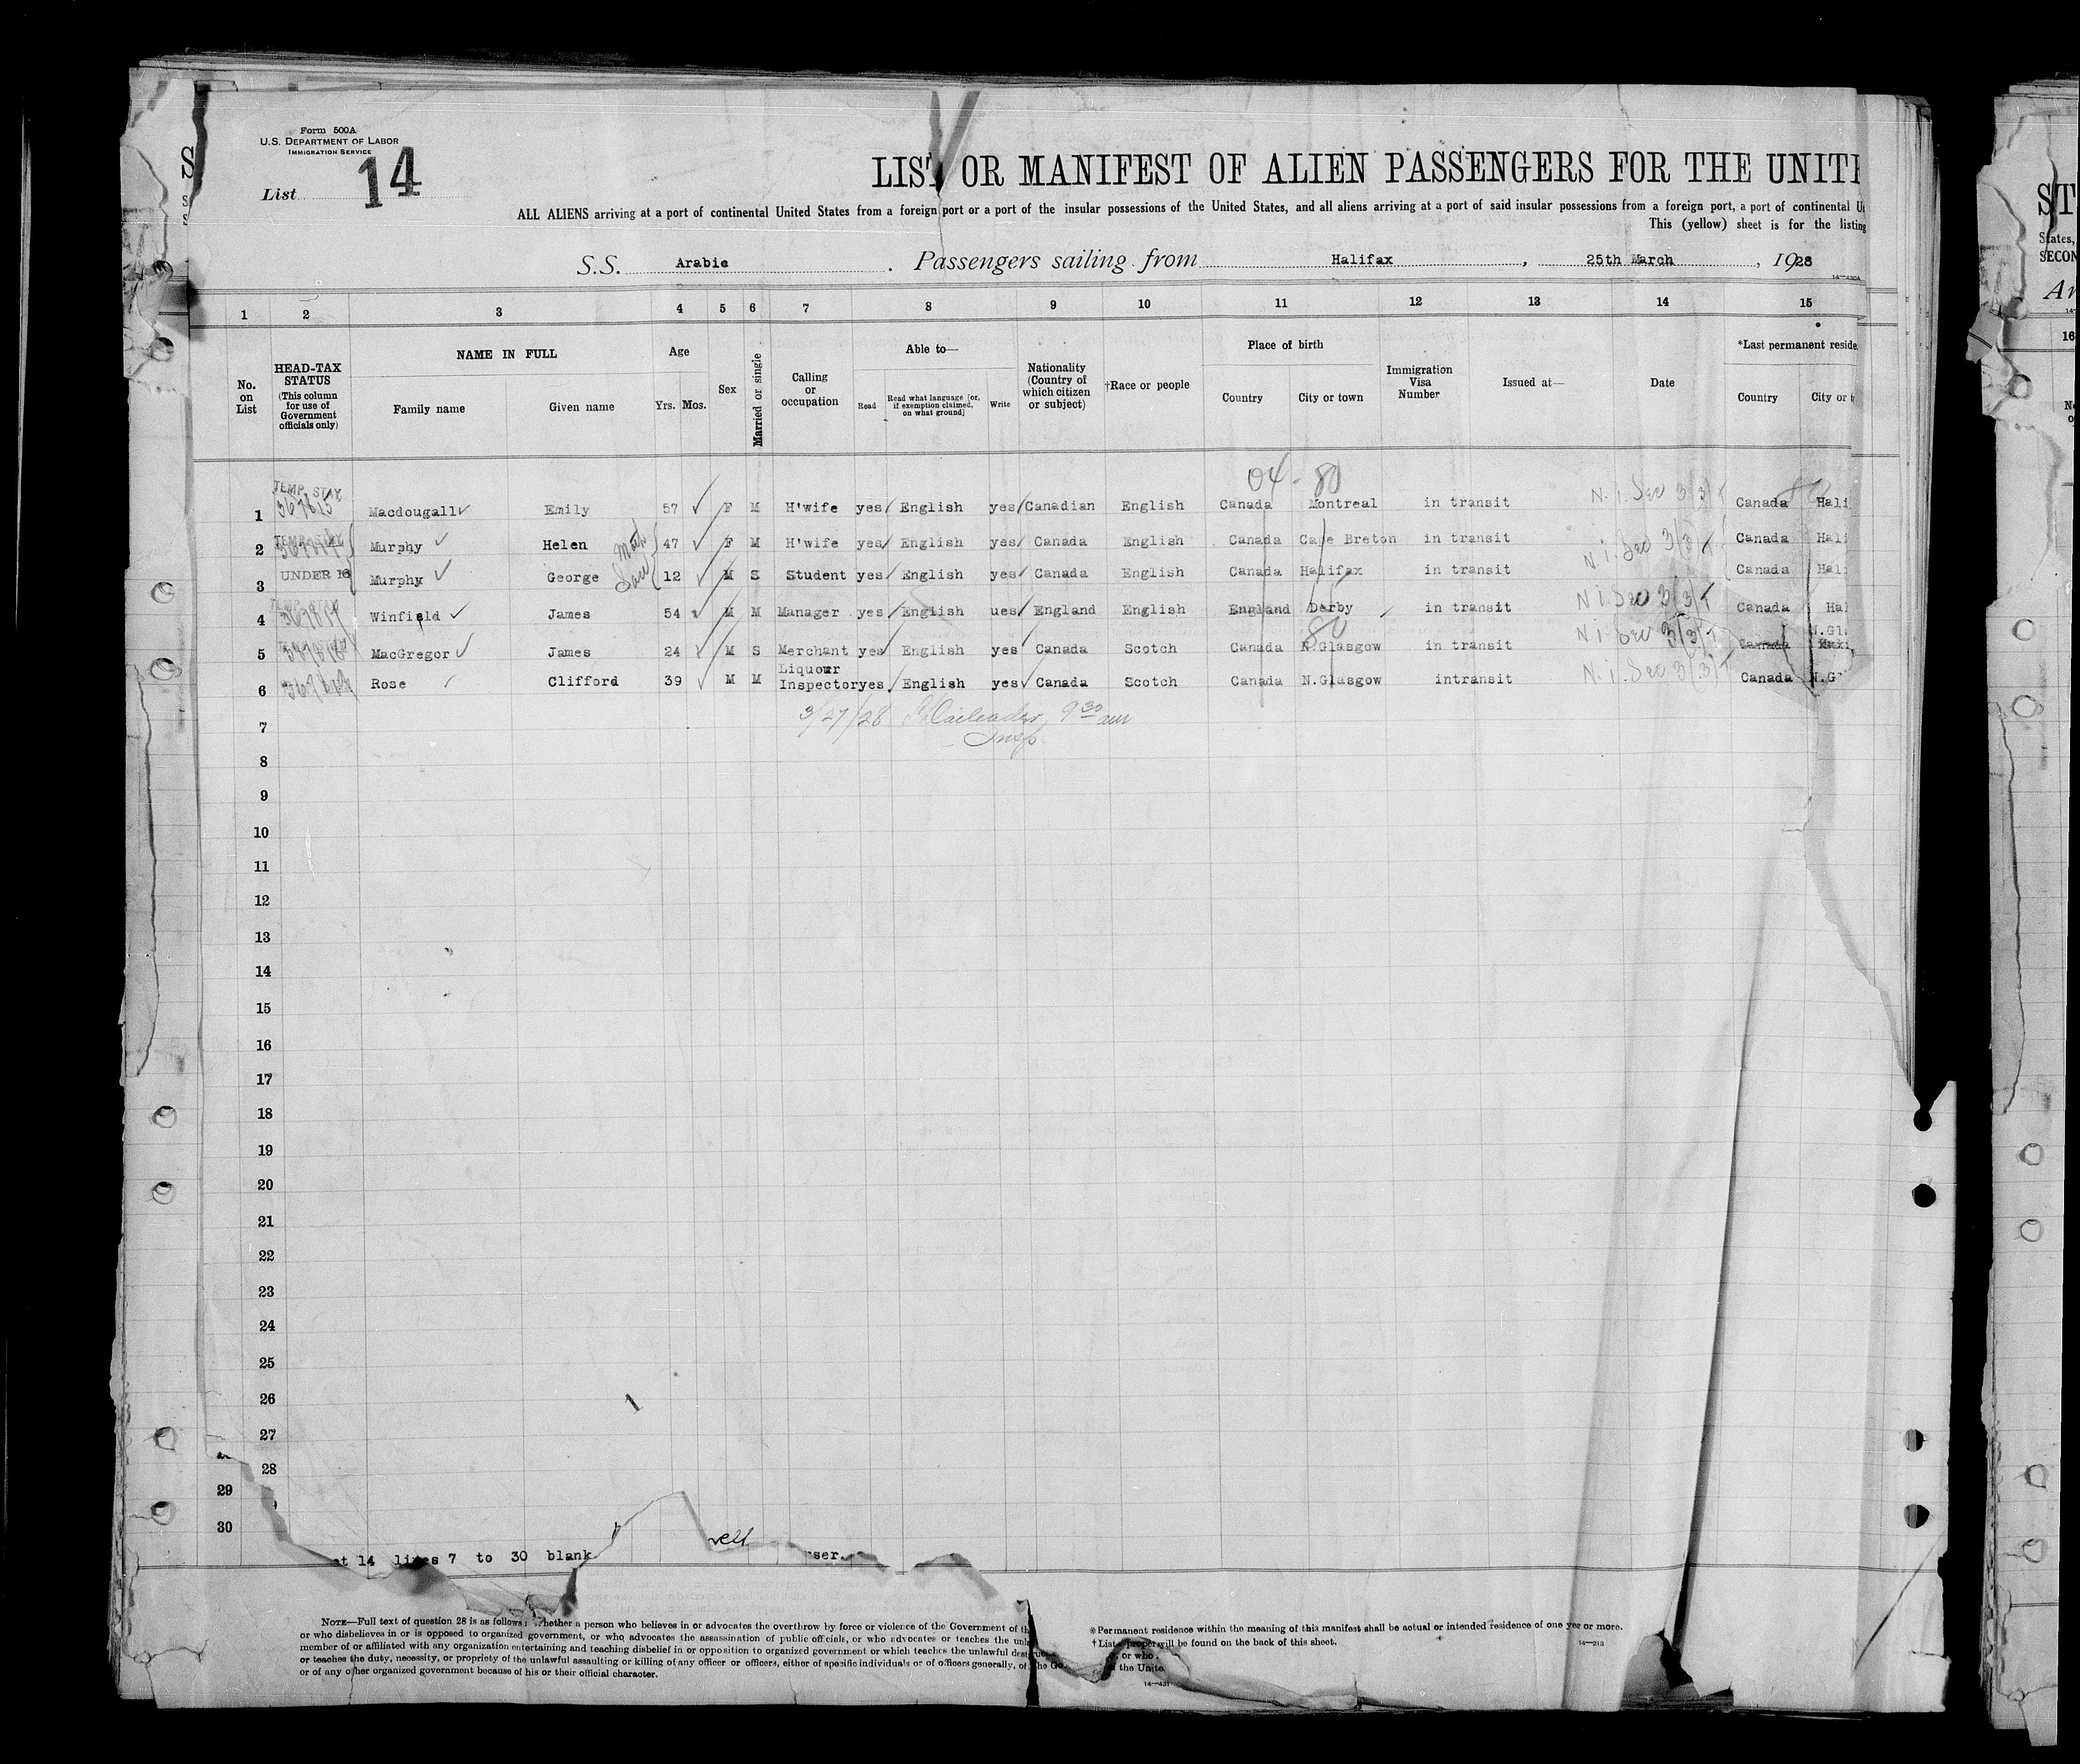 Form 500A
U.S. DEPARTMENT OF LABOR
IMMIGRATION SERVICE
List 14
LIST OR MANIFEST OF ALIEN PASSENGERS FOR THE UNITE
ALL ALIENS arriving at a port of continental United States from a foreign port or a port of the insular possessions of the United States, and all aliens arriving at a port of said insular possessions from a foreign port, a port of continental U
This (yellow) sheet is for the listing
S.S. Arabic . Passengers sailing from Halifax , 25th March , 1928
1 2 3 4 5 6 7 8 9 10 11 12 13 14 15
No. on List
HEAD-TAX STATUS (This column for use of Government officials only)
NAME IN FULL
Family name Given name
Age
Yrs. Mos.
Sex
Married or single
Calling or occupation
Able to—
Read Read what language [or, if exemption claimed, on what ground] Write
Nationality (Country of which citizen or subject)
†Race or people
Place of birth
Country City or town
Immigration Visa Number
Issued at—
Date
*Last permanent reside
Country City or t
04-80
1 TEMP. STAY Macdougall Emily 57 F M H'wife yes English yes Canadian English Canada Montreal in transit N.I. Sec 3(3) Canada Hali
2 Murphy Helen 47 F M H'wife yes English yes Canada English Canada Cape Breton in transit N.I. Sec 3(3) Canada Hali
3 UNDER 16 Murphy George 12 M S Student yes English yes Canada English Canada Halifax in transit Canada Hali
4 Winfield James 54 M M Manager yes English ues England English England Derby in transit N.I. Sec 3(3) Canada Ha
5 MacGregor James 24 M S Merchant yes English yes Canada Scotch Canada N.Glasgow in transit N.I. Sec 3(3) Canada N.Gl
6 Rose Clifford 39 M M Liquour Inspector yes English yes Canada Scotch Canada N.Glasgow intransit N.I. Sec 3(3) Canada N.G
3/27/28 9 30 am
Insp
7
8
9
10
11
12
13
14
15
16
17
18
19
20
21
22
23
24
25
26
27
28
29
30
14 lines 7 to 30 blank
NOTE—Full text of question 28 is as follows: Whether a person who believes in or advocates the overthrow by force or violence of the Government of th
or who disbelieves in or is opposed to organized government, or who advocates the assassination of public officials, or who advocates or teaches the unl
member of or affiliated with any organization entertaining and teaching disbelief in or opposition to organized government or which teaches the unlawful destruc
or teaches the duty, necessity, or propriety of the unlawful assaulting or killing of any officer or officers, either of specific individuals or of officers generally, of the Go
or of any other organized government because of his or their official character.
*Permanent residence within the meaning of this manifest shall be actual or intended residence of one year or more.
† List will be found on the back of this sheet.
or who
the Unite
14—213
14—431